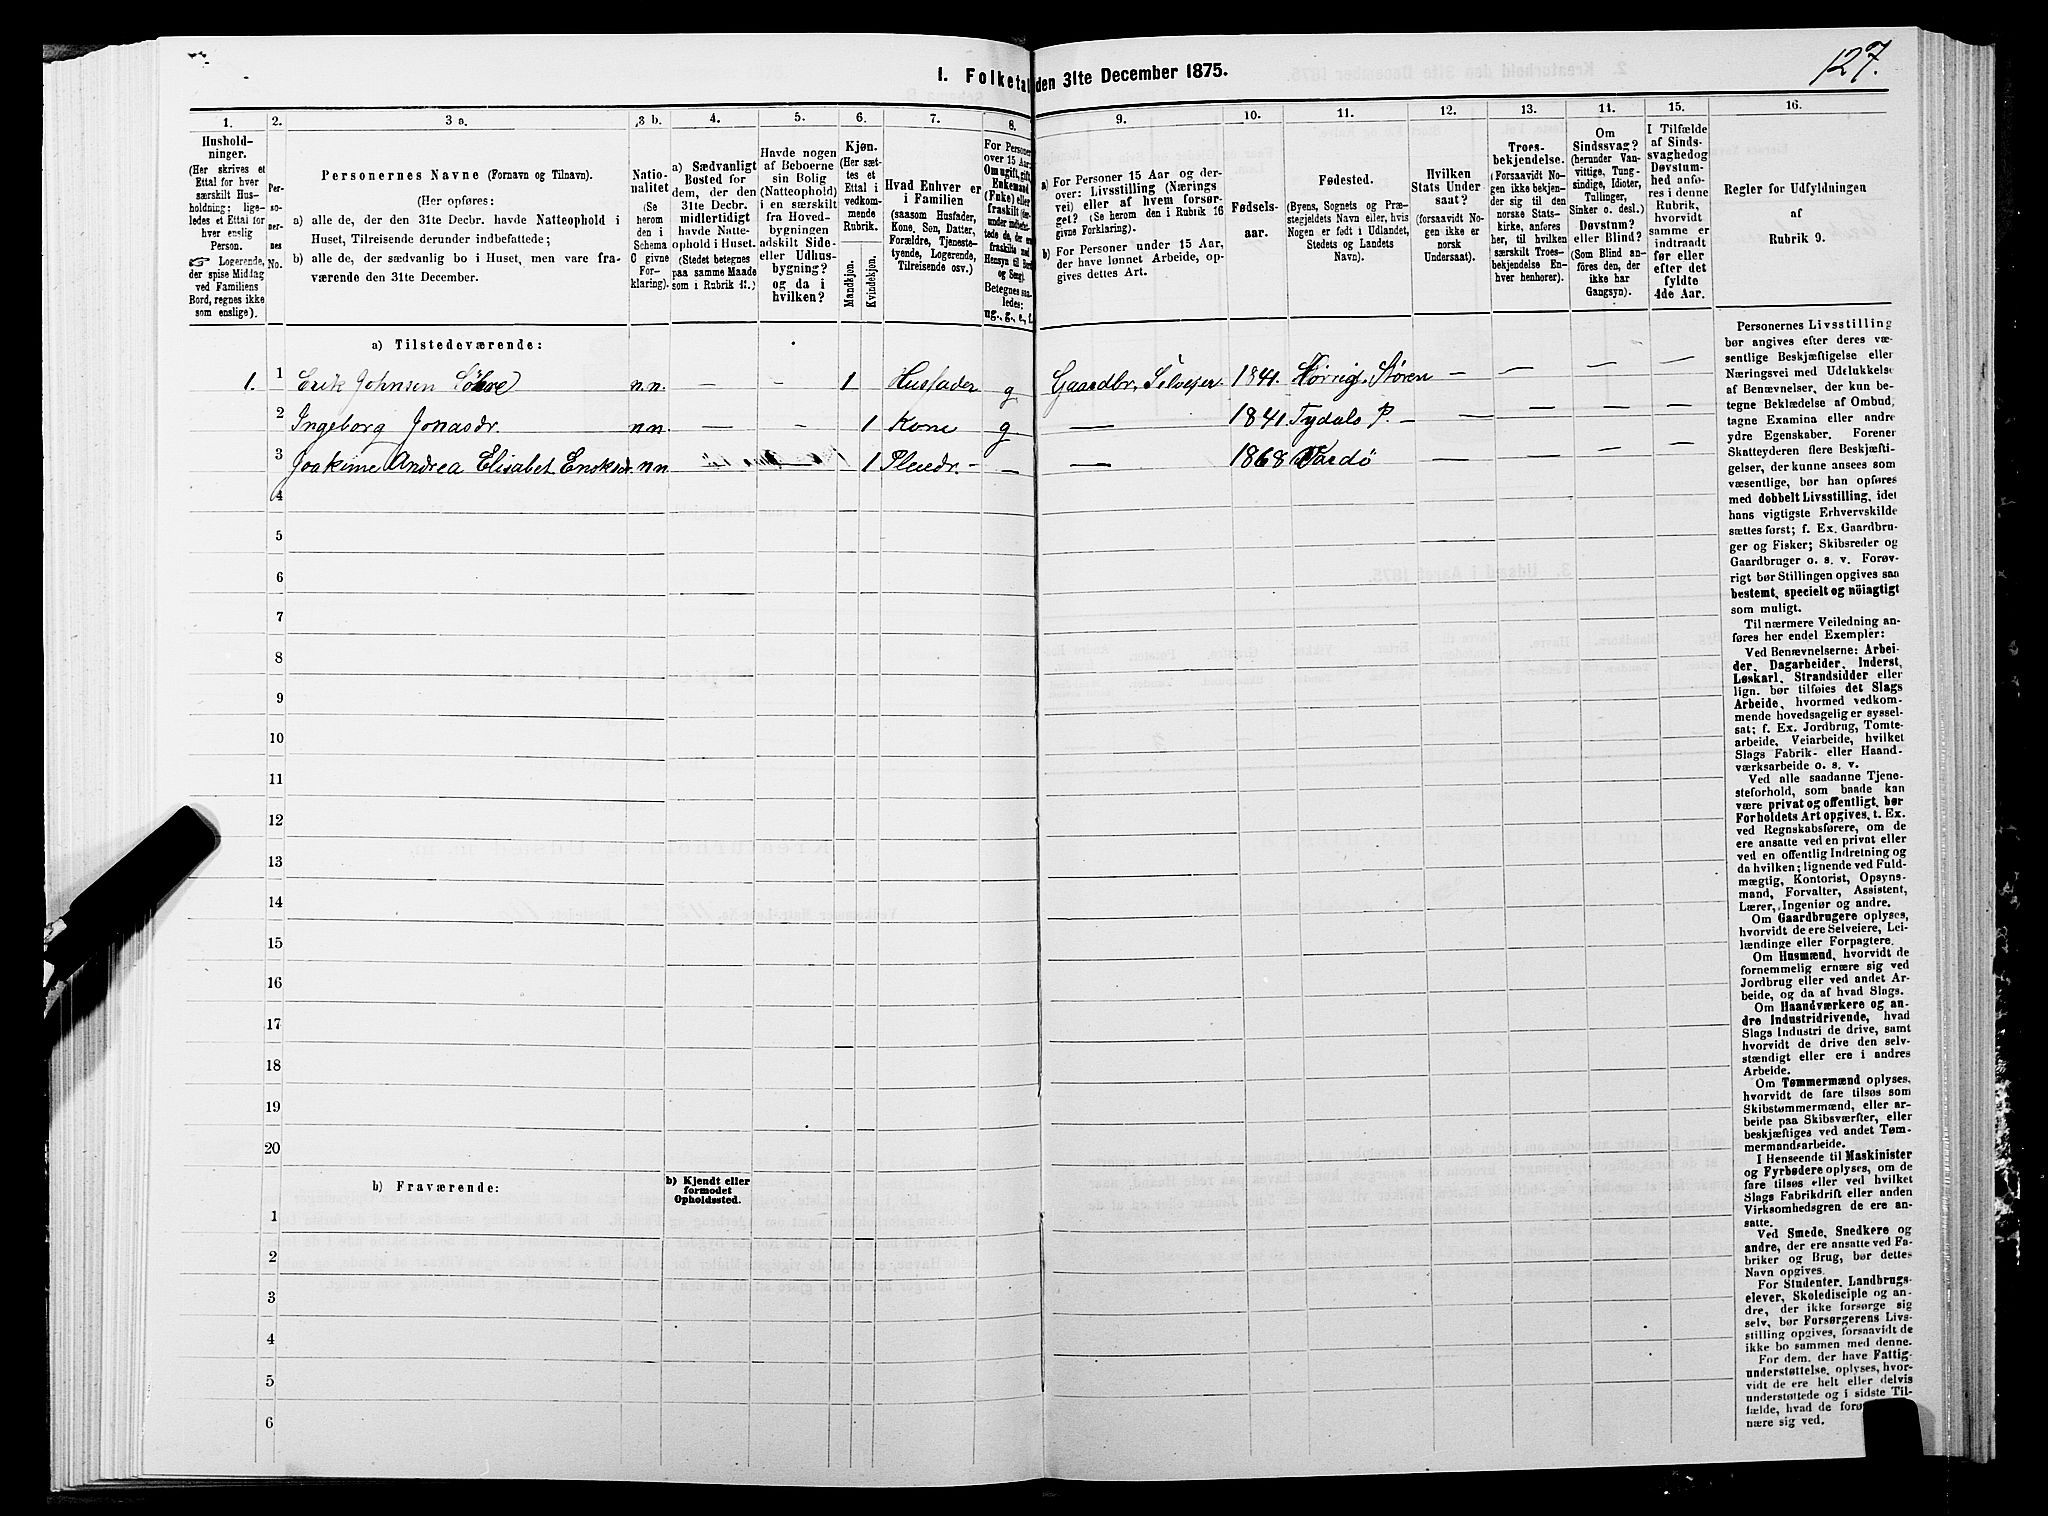 127.
1. Folketal den 31te December 1875.
1. 2. 3 a. 3 b. 4. 5. 6. 7. 8. 9. 10. 11. 12. 13. 14. 15. 16.
Hushold-
ninger.
(Her skrives et
Ettal for hver
særskilt Hus-
holdning; lige-
ledes et Ettal for
hver enslig
Person.
☞ Logerende,
der spise Middag
ved Familiens
Bord, regnes ikke
som enslige).
Per-
so-
ner-
nes
No.
Personernes Navne (Fornavn og Tilnavn).
(Her opføres:
a) alle de, der den 31te Decbr. havde Natteophold i
Huset, Tilreisende derunder indbefattede;
b) alle de, der sædvanlig bo i Huset, men vare fra-
værende den 31te December.
Natio-
nalitet
(Se
herom
den i
Schema
C givne
For-
klaring).
a) Sædvanligt
Bosted for
dem, der den
31te Decbr.
midlertidigt
havde Natte-
ophold i Huset.
(Stedet betegnes
paa samme Maade
som i Rubrik 11.)
Havde nogen
af Beboerne
sin Bolig
(Natteophold)
i en særskilt
fra Hoved-
bygningen
adskilt Side-
eller Udhus-
bygning?
og da i
hvilken?
Kjøn.
(Her sæt-
tes et
Ettal i
vedkom-
mende
Rubrik.
Mandkjøn.
Kvindekjøn.
Hvad Enhver er
i Familien
(saasom Husfader,
Kone, Søn, Datter,
Forældre, Tjeneste-
tyende, Logerende,
Tilreisende osv.)
For Personer
over 15 Aar:
Om ugift, gift,
Enkemand
(Enke) eller
fraskilt
Betegnes saa-
ledes:
ug., g., e., f.
a) For Personer 15 Aar og der-
over: Livsstilling (Nærings
vei) eller af hvem forsør-
get? (Se herom den i Rubrik 16
givne Forklaring).
b) For Personer under 15 Aar,
der have lønnet Arbeide, op-
gives dettes Art.
Fødsels-
aar.
Fødested.
(Byens, Sognets og Præ-
stegjeldets Navn eller, hvis
Nogen er født i Udlandet,
Stedets og Landets
Navn).
Hvilken
Stats Under
saat?
(forsaavidt No-
gen ikke er
norsk
Undersaat).
Troes-
bekjendelse.
(Forsaavidt No-
gen ikke bekjen-
der sig til den
norske Stats-
kirke, anføres
her, til hvilken
særskilt Troes-
bekjendelse En-
hver henhorer).
Om
Sindssvag?
(herunder Van-
vittige, Tung-
sindige, Idioter,
Tullinger,
Sinker o. desl.)
Døvstum?
eller Blind?
(Som Blind an-
føres den, der
ikke har
Gangsyn).
I Tilfælde
af Sinds-
svaghed og
Døvstum-
hed anfø-
res i denne
Rubrik,
hvorvidt
samme er
indtraadt
før eller
efter det
fyldte
4de Aar.
Regler for Udfyldningen
af
Rubrik 9.
a) Tilstedeværende:
1. 1 Erik Johnsen n.n. — - 1 Husfader g Gaardbr. Selvejer. 1841. Størren — — — —
2 Ingeborg Jonasdr. n.n. — - 1 Kone g — 1841 Tydals P. - — — — —
3 Joakime Andrea Elisabet n.n 1 Pleiedr. - — — 1868 Vardø — — — —
4
5
6
7
8
9
10
11
12
13
14
15
16
17
18
19
20
b) Fraværende:
b) Kjendt eller
formodet
Opholdssted.
1
2
3
4
5
6
Personernes Livsstilling
bør angives efter deres væ-
sentlige Beskjæftigelse eller
Næringsvei med Udelukkelse
af Benævnelser, der kun be-
tegne Beklædelse af Ombud,
tagne Examina eller andre
ydre Egenskaber. Forener
Skatteyderen flere Beskjæfti-
gelser, der kunne ansees som
væsentlige, bør han opføres
med dobbelt Livsstilling, idet
hans vigtigste Erhvervskilde
sættes først; f. Ex. Gaardbru-
ger og Fisker; Skibsreder og
Gaardbruger o. s. v. Forøv-
rigt bør Stillingen opgives saa
bestemt, specielt og nöiagtigt
som muligt.
Til nærmere Veiledning an-
føres her endel Exempler:
Ved Benævnelserne: Arbei-
der, Dagarbeider, Inderst,
Løskarl, Strandsidder eller
lign. bør tilføies det Slags
Arbeide, hvormed vedkom-
mende hovedsagelig er syssel-
sat; f. Ex. Jordbrug, Tomte-
arbeide, Veiarbeide, hvilket
Slags Fabrik- eller Haand-
værksarbeide o. s. v.
Ved alle saadanne Tjene-
steforhold, som baade kan
være privat og offentligt, bør
Forholdets Art opgives, t. Ex.
ved Regnskabsførere, om de
ere ansatte ved en privat eller
ved en offentlig Indretning og
da hvilken; lignende ved Fuld-
mægtig, Kontorist, Opsyns-
mand, Forvalter, Assistent,
Lærer, Ingeniør og andre.
Om Gaardbrugere oplyses,
hvorvidt de ere Selveiere, Lei-
lændinge eller Forpagtere.
Om Husmænd, hvorvidt de
fornemmelig ernære sig ved
Jordbrug eller ved andet Ar-
beide, og da af hvad Slags.
Om Haandværkere og an-
dre Industridrivende, hvad
Slags Industri de drive, samt
hvorvidt de drive den selv-
stændigt eller ere i andres
Arbeide.
Om Tømmermænd oplyses,
hvorvidt de fare tilsøs som
Skibstømmermænd, eller ar-
beide paa Skibsværfter, eller
beskjæftiges ved andet Tøm-
mermandsarbeide.
I Henseende til Maskinister
og Fyrbødere oplyses, om de
fare tilsøs eller ved hvilket
Slags Fabrikdrift eller anden
Virksomhedsgren de ere an-
satte.
Ved Smede, Snedkere og
andre, der ere ansatte ved Fa-
briker og Brug, bør dettes
Navn opgives.
For Studenter, Landbrugs-
elever, Skoledisciple og an-
dre, der ikke forsørge sig
selv, bør Forsørgerens Livs-
stilling opgives, forsaavidt de
ikke bo sammen med denne.
For dem, der have Fattig-
understøttelse, oplyses, hvor-
vidt de ere helt eller delvis
understøttede og i sidste Til-
fælde, hvad de
nære sig ved.